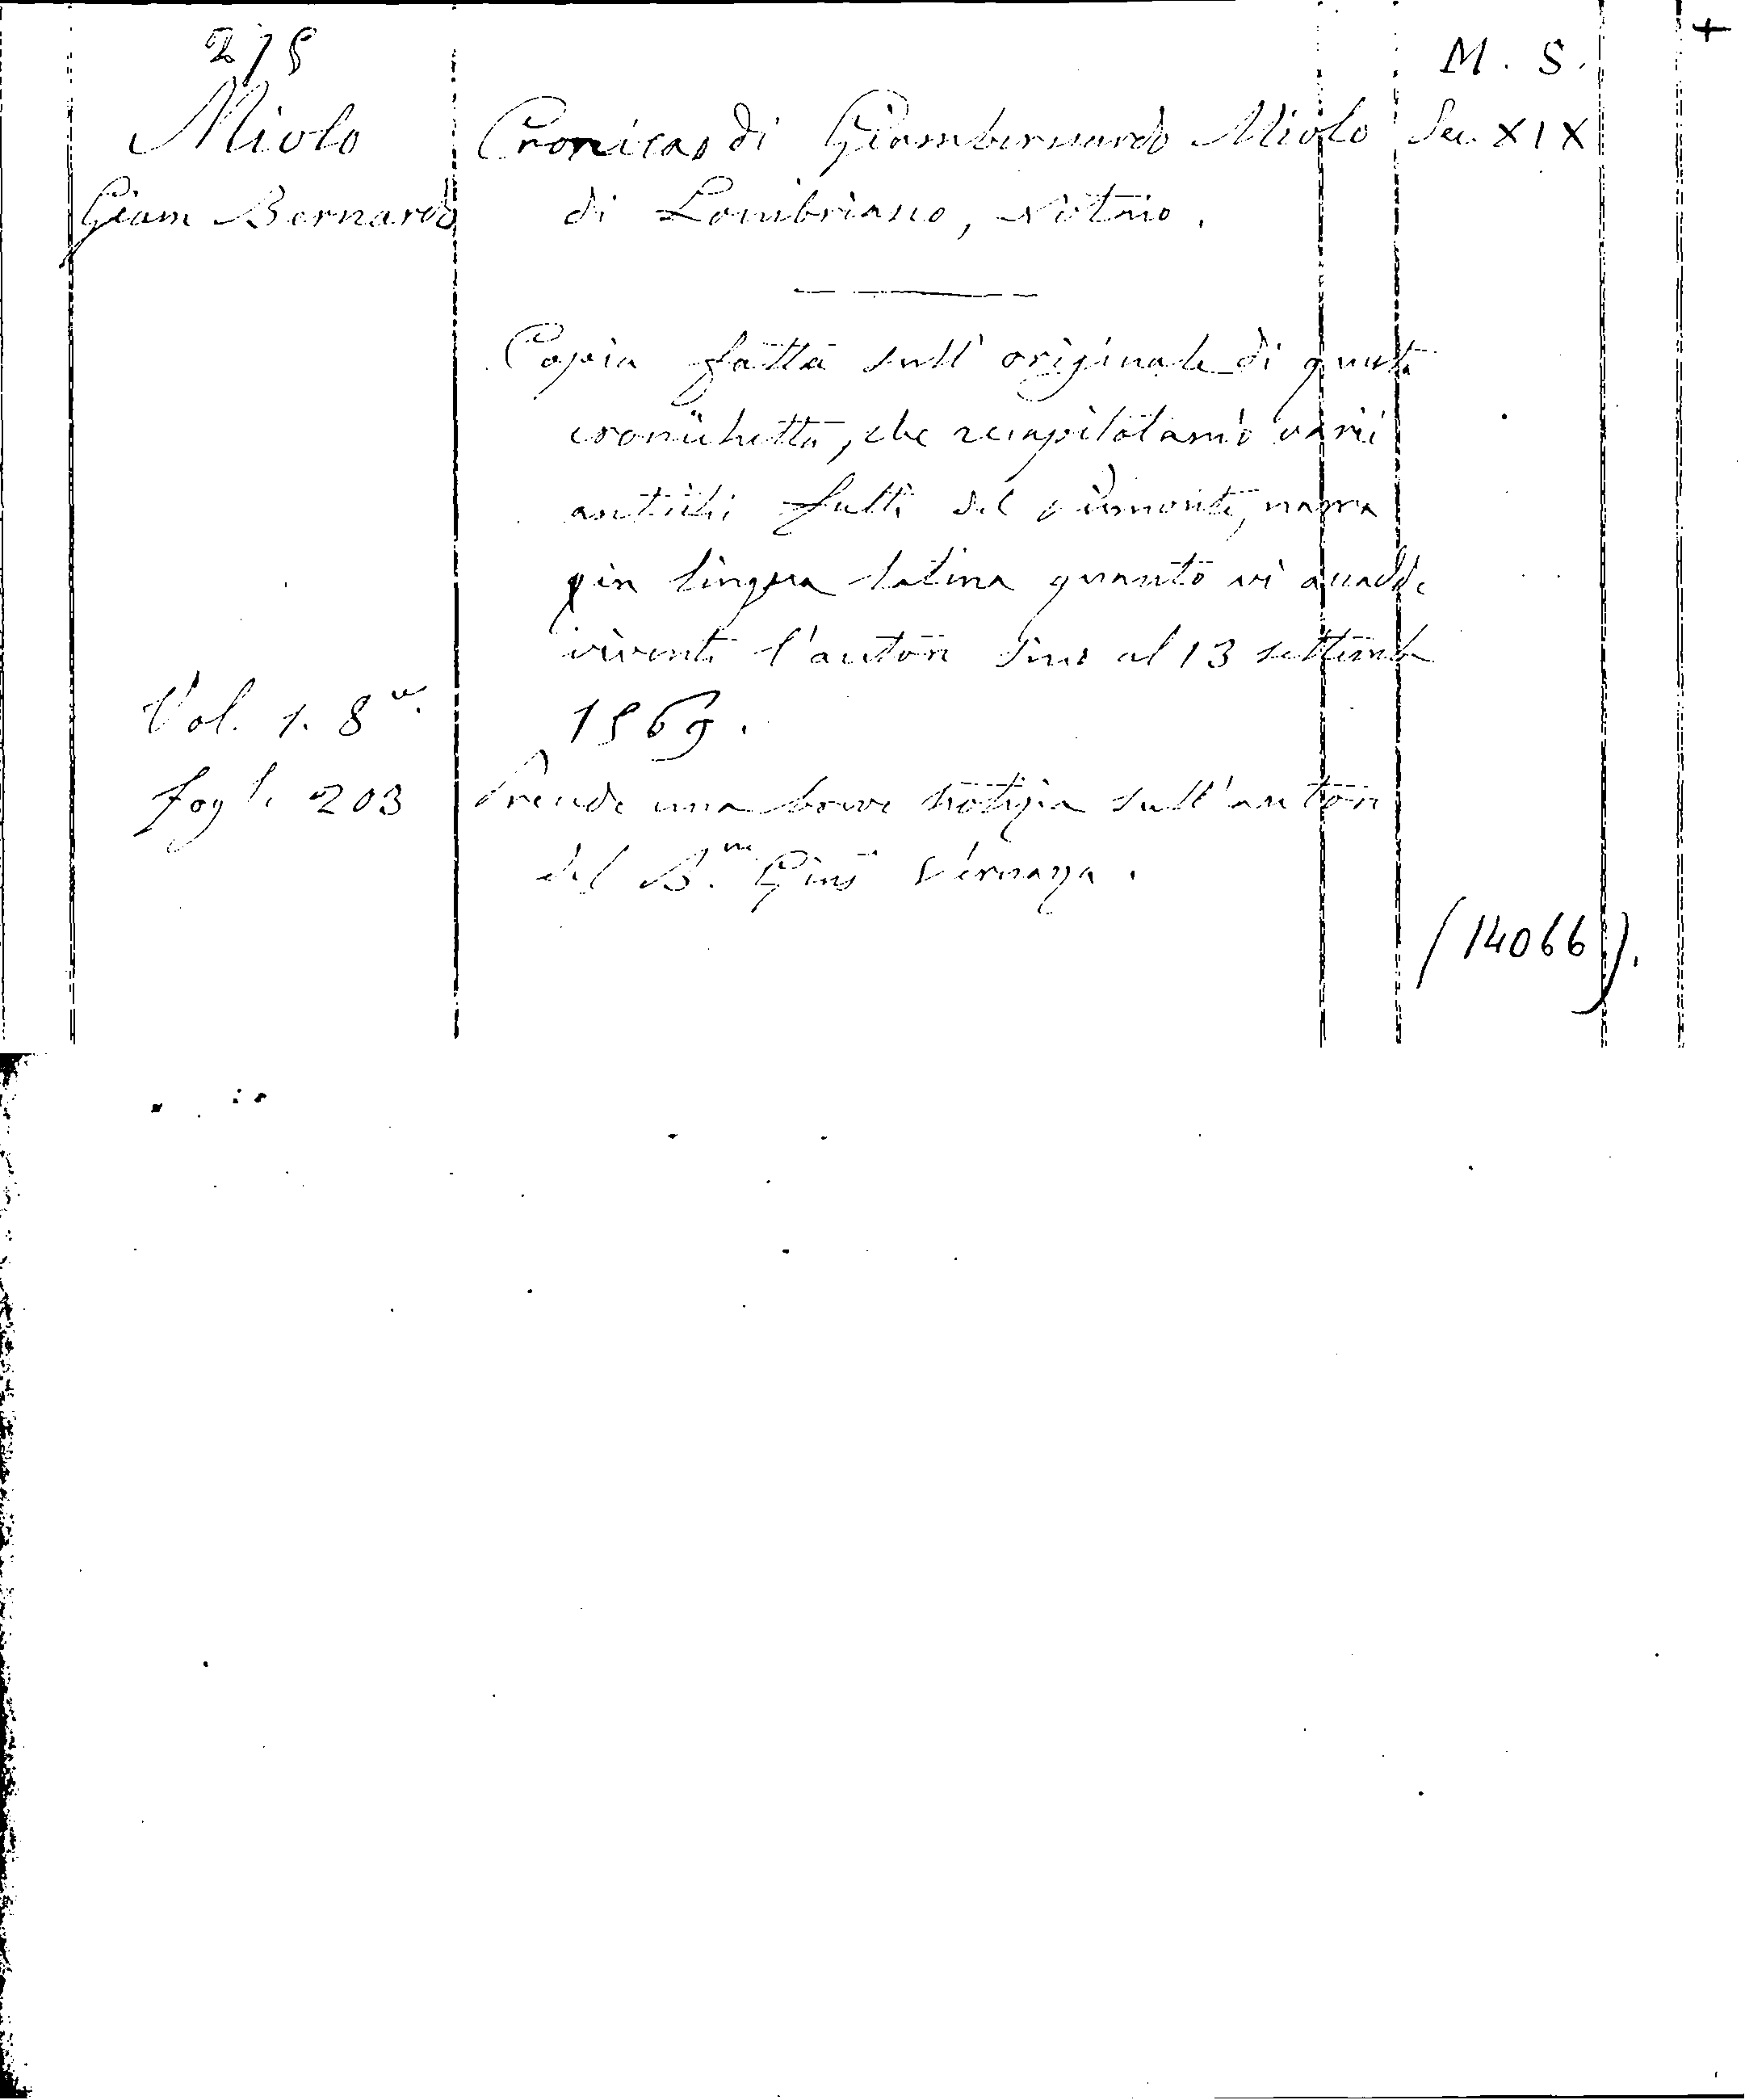 275
M. S.
Miolo
Cronicas di Giambernardo Miolo
Sec. XIX
Giam Bernardo
di Lombriasco, Notaio.
Copia fatta sull' originale di questa
cronichetta, che recapitolando varii
antichi fatti del piemonte, narra
in lingua latina quanto vi accadde
vivente l'autore sino al 13 settemb
Vol. 1. 8º.
1569.
fogli 203
Precede una breve notizia sull' autore
del B.ne Gius Vernazza.
(14066).